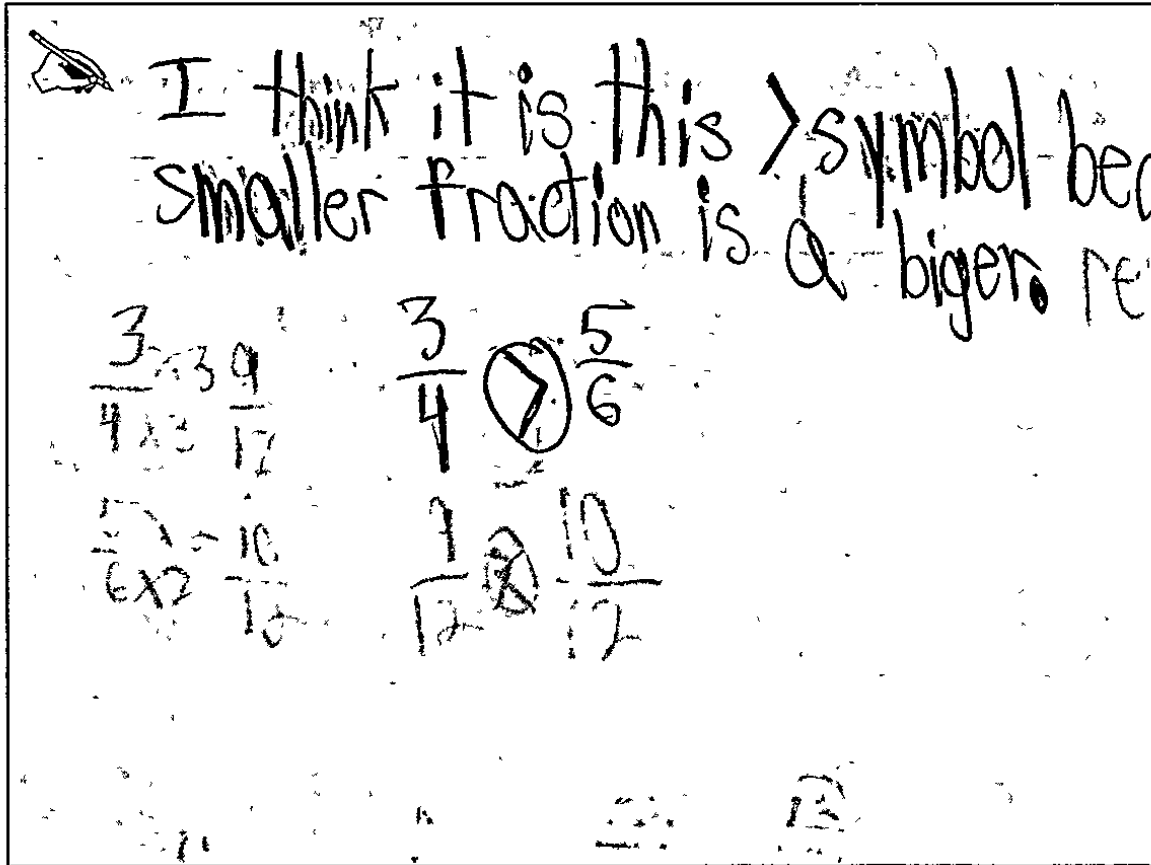 I think it is this > symbol bec
smaller fraction is a biger. re
3/4 × 3 9/12
3/4 > 5/6
6×2 = 10/12
12 10/12